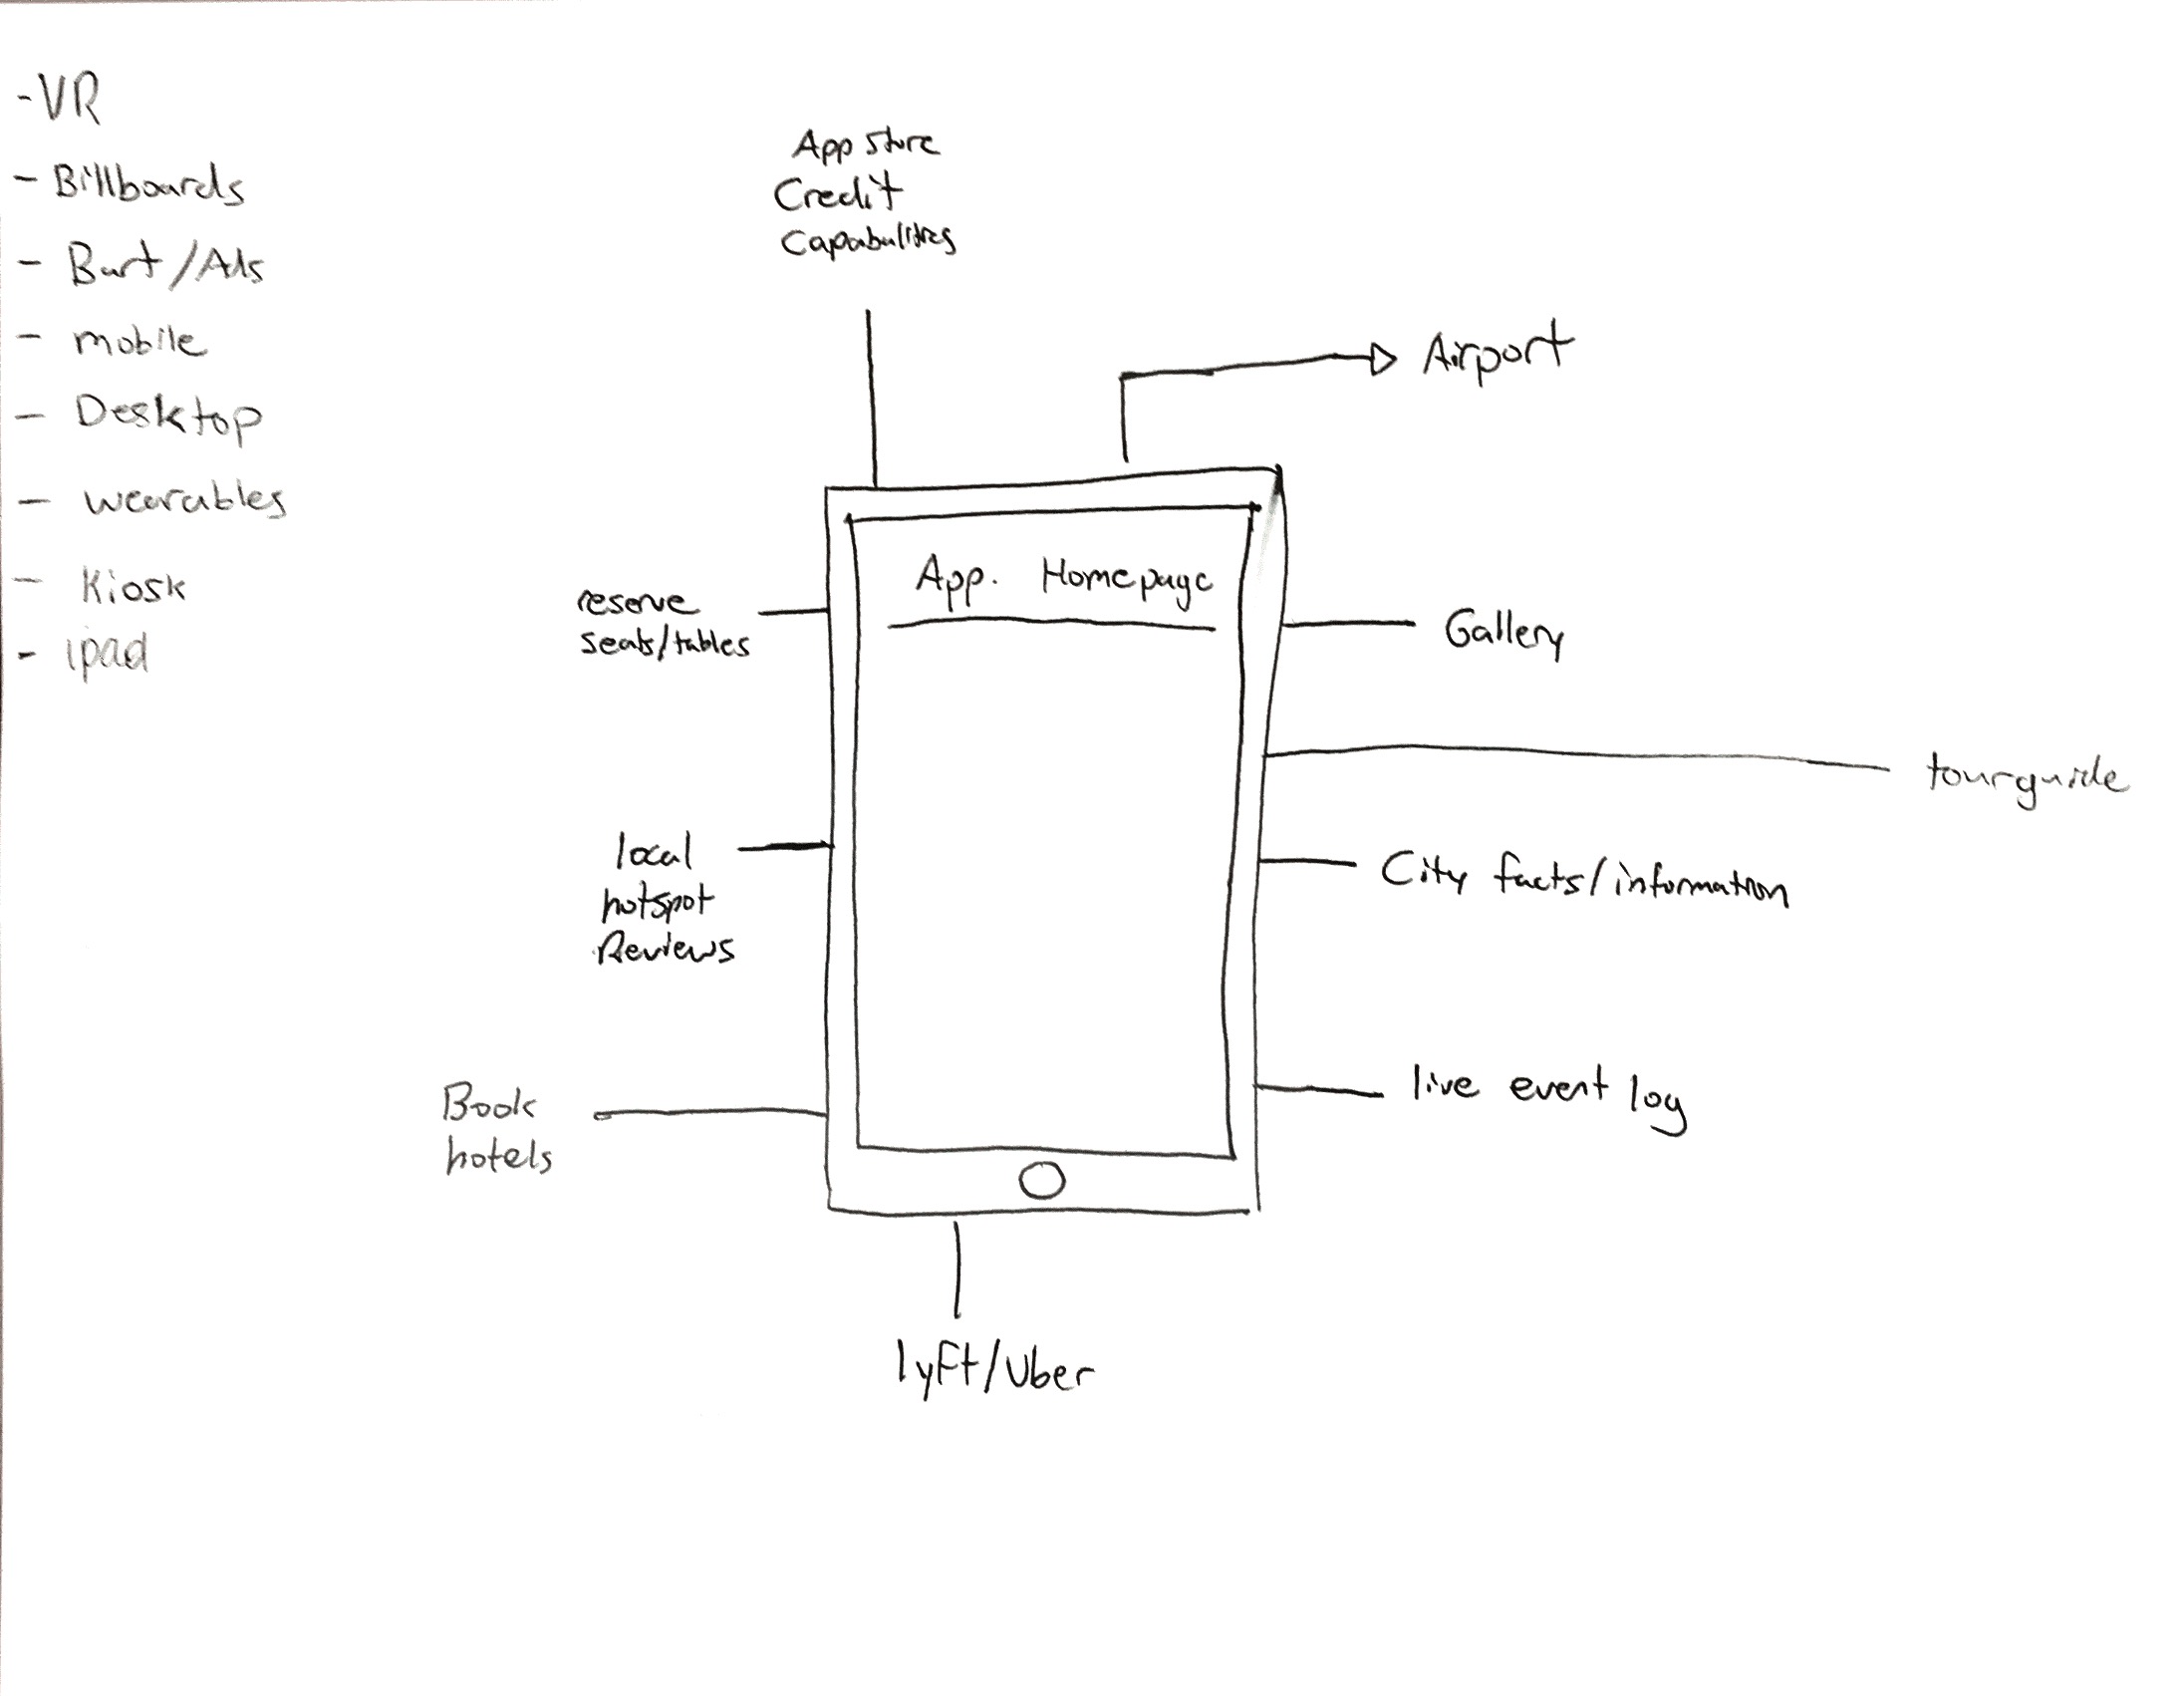 - VR
- Billboards
- Bart/Ads
- mobile
- Desktop
- wearables
- Kiosk
- ipad
App Store
Credit
Capabulities
Airport
App. Homepage
reserve
seats/tables
Gallery
tourguide
local
hotspot
Reviews
City facts/information
Book
hotels
live event log
lyft/Uber